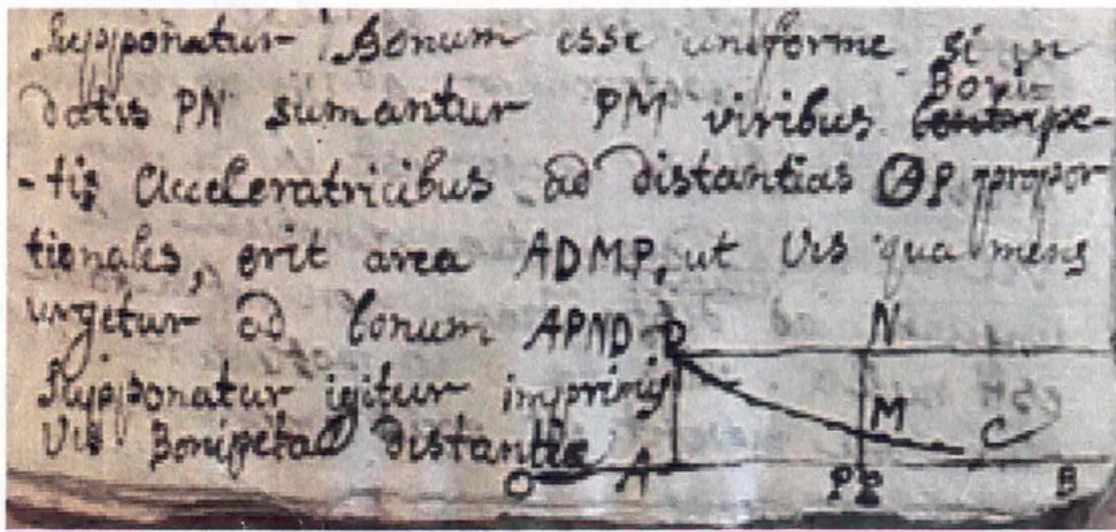 Supponatur Bonum esse uniforme si in
datis PN sumantur PM viribus Bonipe-
-tis Acceleratricibus ad distantias OP propor
tionales, erit area ADMP, ut Vis qua mens
urgetur ad bonum APND
Supponatur igitur imprimis
Vis Bonipeta distantiæ
D N
M C
O A P B